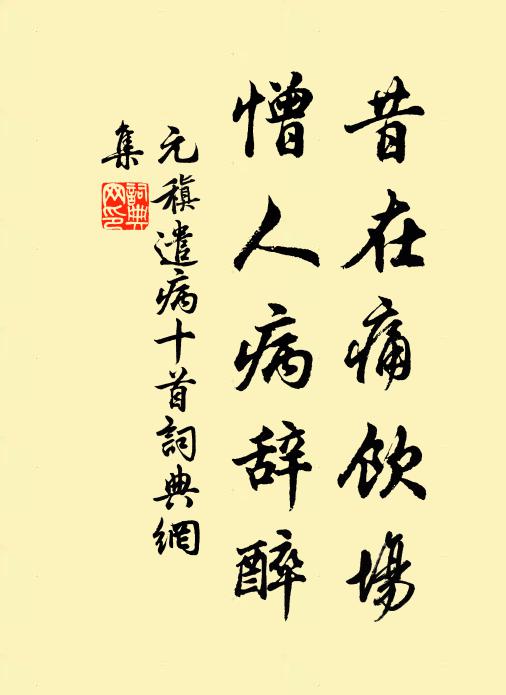 昔在痛飲場
憎人病辞醉
元稹遣病十首詞典網
集
詞典
网印